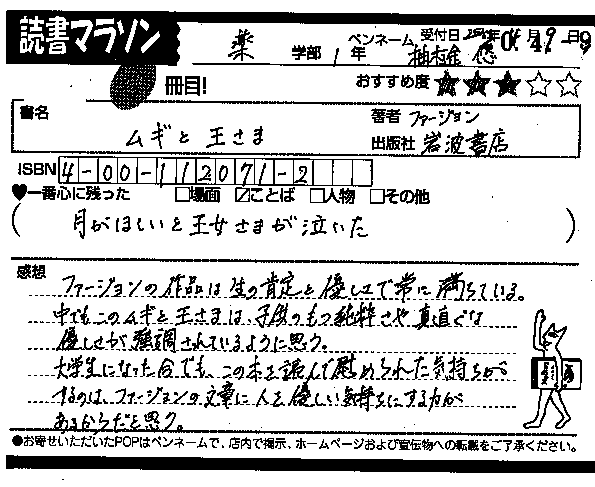 読書マラソン
薬 学部 1年 ペンネーム 受付日
冊目! おすすめ度 ★★★☆☆
書名 ムギと王さま
著者 ファージョン
出版社 岩波書店
ISBN 4-00-112071-2
♥一番心に残った □場面 ☑ことば □人物 □その他
(月がほしいと王女さまが泣いた)
感想
ファージョンの作品は生の肯定と優しさで常に満ちている。
中でもこのムギと王さまは、子供のもつ純粋さや真直ぐな
優しさが強調されているように思う。
大学生になった今でも、この本を読んで慰められた気持ちが
するのは、ファージョンの文章に人を優しい気持ちにする力が
あるからだと思う。
●お寄せいただいたPOPはペンネームで、店内で掲示、ホームページおよび宣伝物への転載をご了承ください。